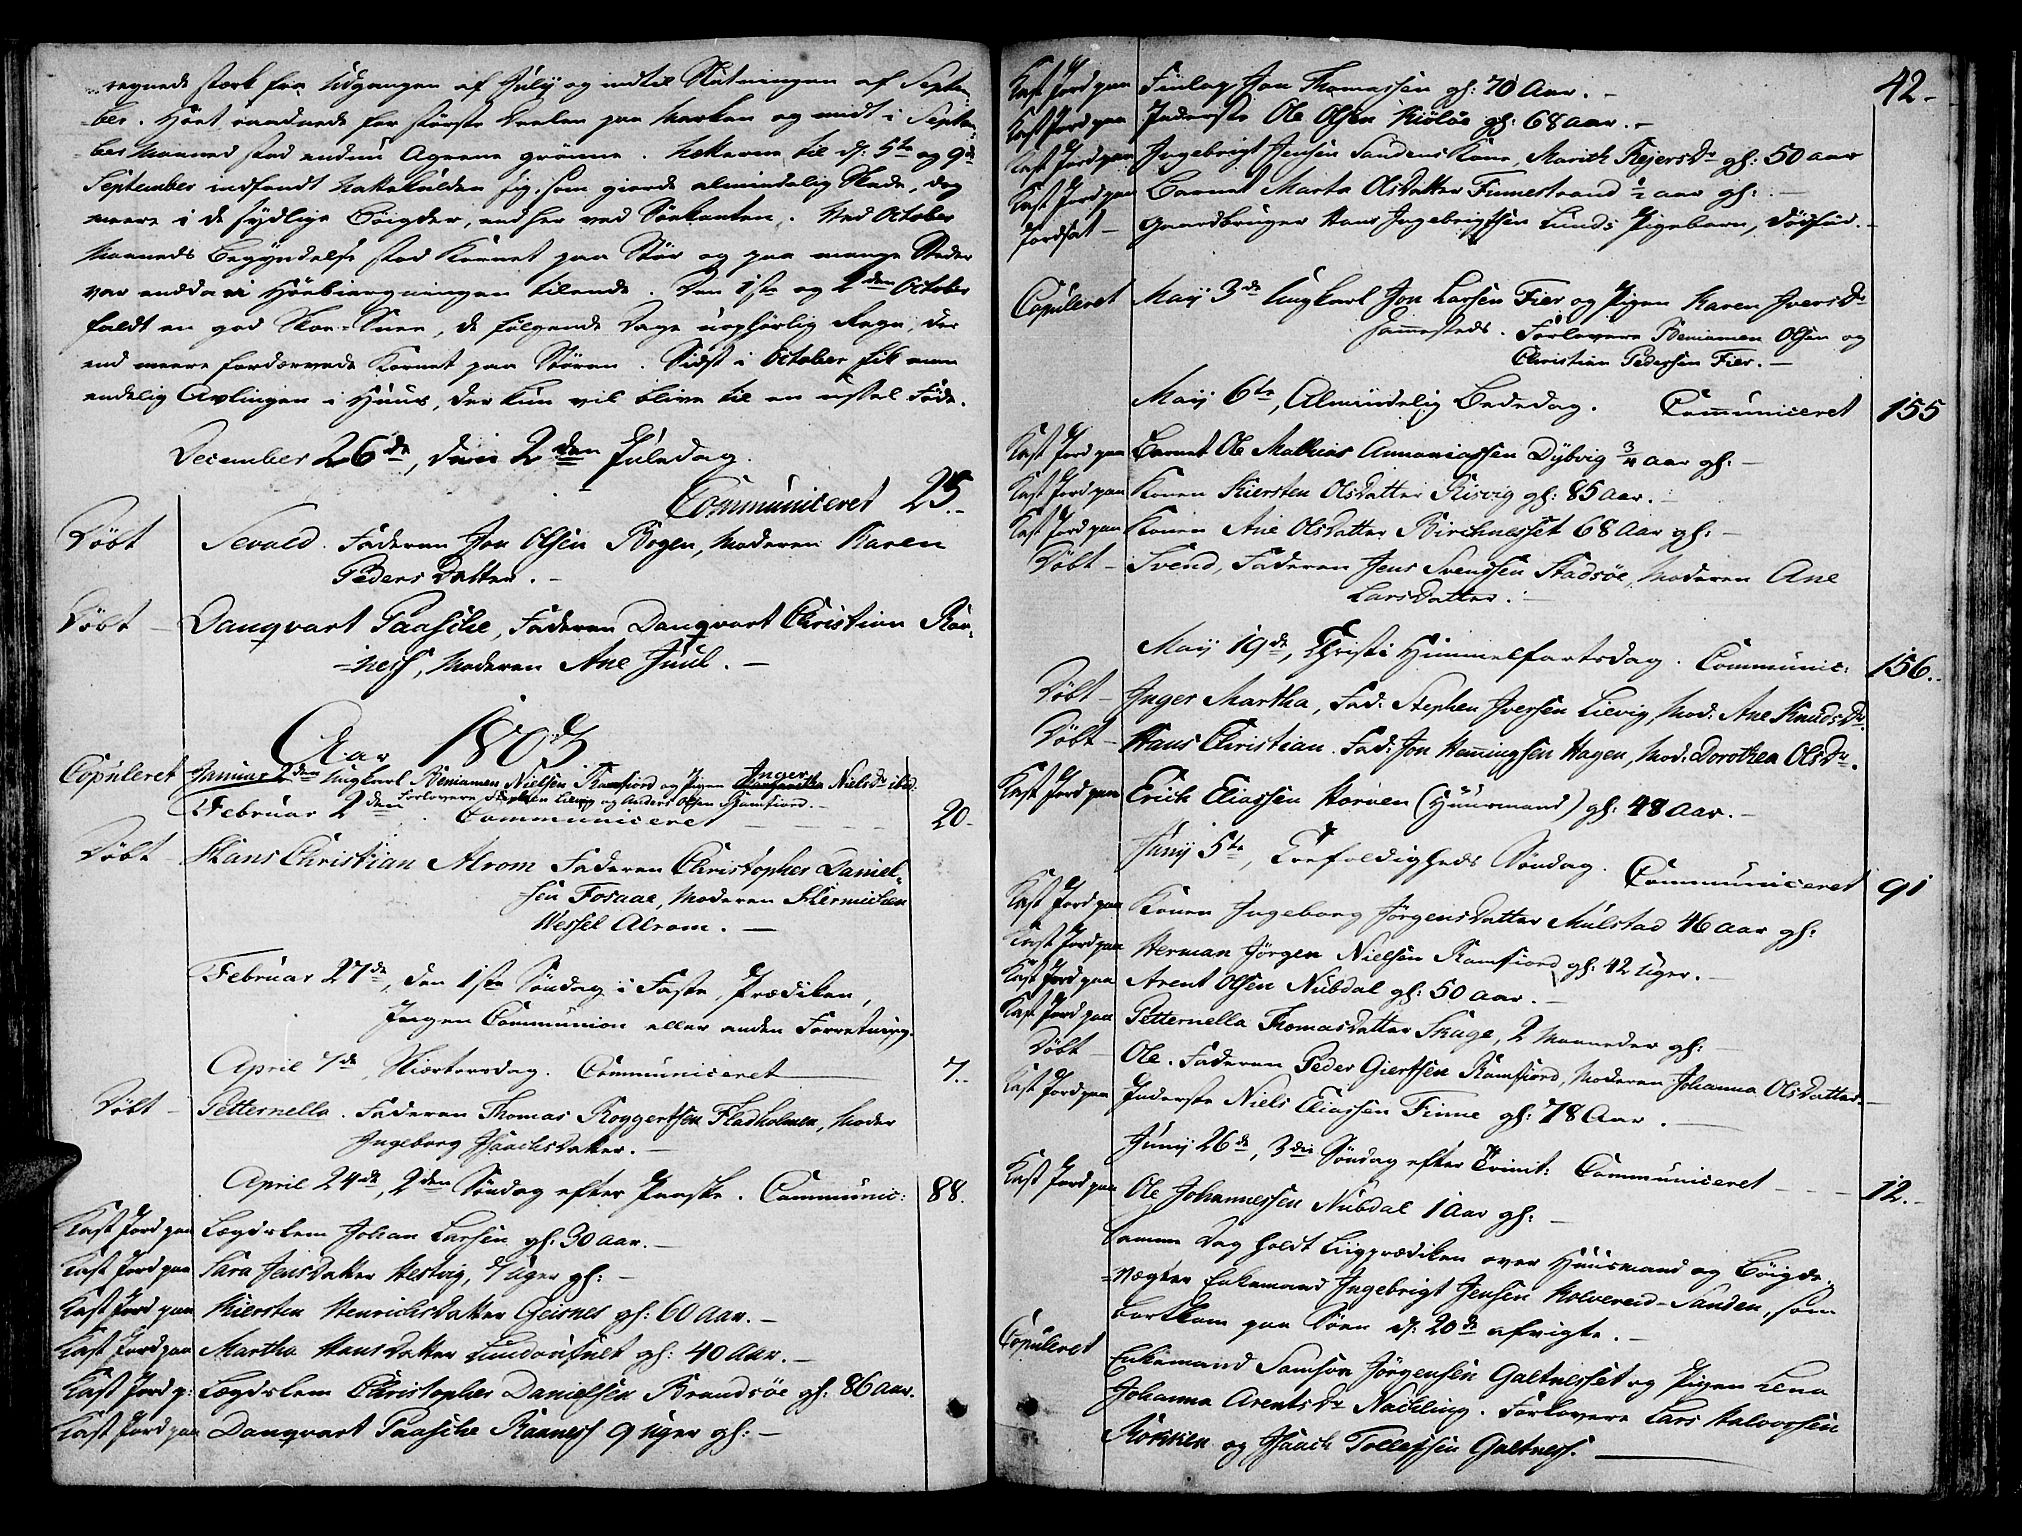 regnede stærk fra Udgangen af July og indtil Slutningen af Septem-
-ber. Höet raadnede for störste Deelen paa Marken og midt i Septem-
ber Maaned stod endnu Agrene grönne. Netterne til d: 5te og 9de
September indfandt Nattekulden sig, som giorde almindelig Skade, dog
meere i de sydlige Böigder, end her ved Söekanten. Ved October
Maaneds Begyndelse stod Kornet paa Stör og paa mange Steder
var endda ei Höebiergningen tilende. Den 1ste og 2den October
faldt en god Skoe-Snee, de fölgende Dage uophörlig Regn, der
end meere fordærvede Kornet paa Stören. Sidst i October fik man
endelig Avlingen i Huus, der kun vil blive til en ussel Föde.
December 26de, den 2den Juledag.
Communiceret 25.
Döbt Sevald. Faderen Jon Olsen Bogen, Moderen Karen
Peders Datter.
Döbt - Danqvart Paasche, Faderen Danqvart Christian Raa-
-ness, Moderen Ane Juul. -
Aar 1803
Copuleret Januar 2den Ungkarl Beniamen Nielsen Ramfiord og Pigen Inger Nielsdr ibid.
Forlovere Stephen Lievig og Anders Olsen Ramfiord.
Februar 2den. Communiceret 20.
Döbt - Hans Christian Alrom Faderen Christopher Daniel-
sen Fosaae, Moderen Hermichen
Wessel Alrom. -
Februar 27de, den 1ste Söndag i Faste, Prædiken,
Ingen Communion eller anden Forretning.
April 7de, Skiærtorsdag. Communiceret 7.
Döbt - Petternella. Faderen Thomas Roggertsen Fladholmen, Moder
Ingeborg Isaachsdatter. -
April 24de, 2den Söndag efter Paaske. Communic: 88.
Kast Jord paa Lægdslem Johan Larsen gl: 30 Aar. -
Kast Jord paa Sara Jensdatter Hestvig, 7 Uger gl: -
Kast Jord paa Kiersten Henrichsdatter Geisnes gl: 60 Aar. -
Kast Jord paa Martha Hansdatter gl: 40 Aar. -
Kast Jord p: Lægdslem Christopher Danielsen Brandsöe gl: 86 Aar.
Kast Jord paa Danqvart Paasche Raaness 9 Uger gl: -
42.
Kast Jord paa Finlap Jon Thomassen gl: 70 Aar. -
Kast Jord paa Inderste Ole Olsen Kiölöe gl: 68 Aar. -
Kast Jord paa Ingebrigt Jensen Sandens Kone, Marith Rejersdr gl: 50 Aar
Kast Jord paa Barnet Marta Olsdatter Finnestrand 1/2 Aar gl: -
Jordsat - Gaardbruger Hans Ingebrigtsen Lunds Pigebarn, Dödfödt. -
Copuleret May 3de Ungkarl Jon Larsen Fier og Pigen Karen Iversdr
sammesteds. Forlovere Beniamen Olsen og
Christian Pedersen Fier. -
May 6te, Almindelig Bededag. Communiceret 155
Kast Jord paa Barnet Ole Mathias Annaniassen Dybvig 3/4 Aar gl: -
Kast Jord paa Konen Kiersten Olsdatter Risvig gl: 85 Aar. -
Kast Jord paa Konen Ane Olsdatter Birchnesset 68 Aar gl: -
Döbt - Svend, Faderen Jens Svendsen Stadsöe, Moderen Ane
Larsdatter. -
May 19de, Christi Himmelfartsdag. Communic: 156.
Döbt - Inger Martha, Fad: Stephen Iversen Lievig, Mod: Ane Knudsdr.
Döbt - Hans Christian. Fad: Jon Hemingsen Hagen, Mod: Dorothea Olsdr.
Kast Jord paa Erich Eliassen Horven (Huusmand) gl: 48 Aar. -
Juny 5te, Trefoldigheds Söndag. Communiceret 91
Kast Jord paa Konen Ingeborg Jörgensdatter Mulstad 46 Aar gl:
Kast Jord paa Herman Jörgen Nielsen Ramfiord gl: 42 Uger. -
Kast Jord paa Arent Olsen Nubdal gl: 50 Aar. -
Kast Jord paa Petternella Thomasdatter Skage, 2 Maaneder gl: -
Döbt - Ole. Faderen Peder Giertsen Ramfiord, Moderen Johanna Olsdatter. -
Kast Jord paa Inderste Niels Eliassen Finne gl: 78 Aar. -
Juny 26de, 3die Söndag efter Trinit: Communiceret 12.
Kast Jord paa Ole Johannessen Nubdal 1 Aar gl: -
Samme Dag holdt Liigprædiken over Huusmand og Böigde-
-Vægter Enkemand Ingebrigt Jensen Kolvereid-Sanden, som
bortkom paa Söen d: 20de afvigte. -
Copuleret Enkemand Samson Jörgensen Galtnesset og Pigen Lena
Johanna Arentsdr Nachling. Forlovere Lars Halvorsen
og Isaach Tollefsen Galtness.